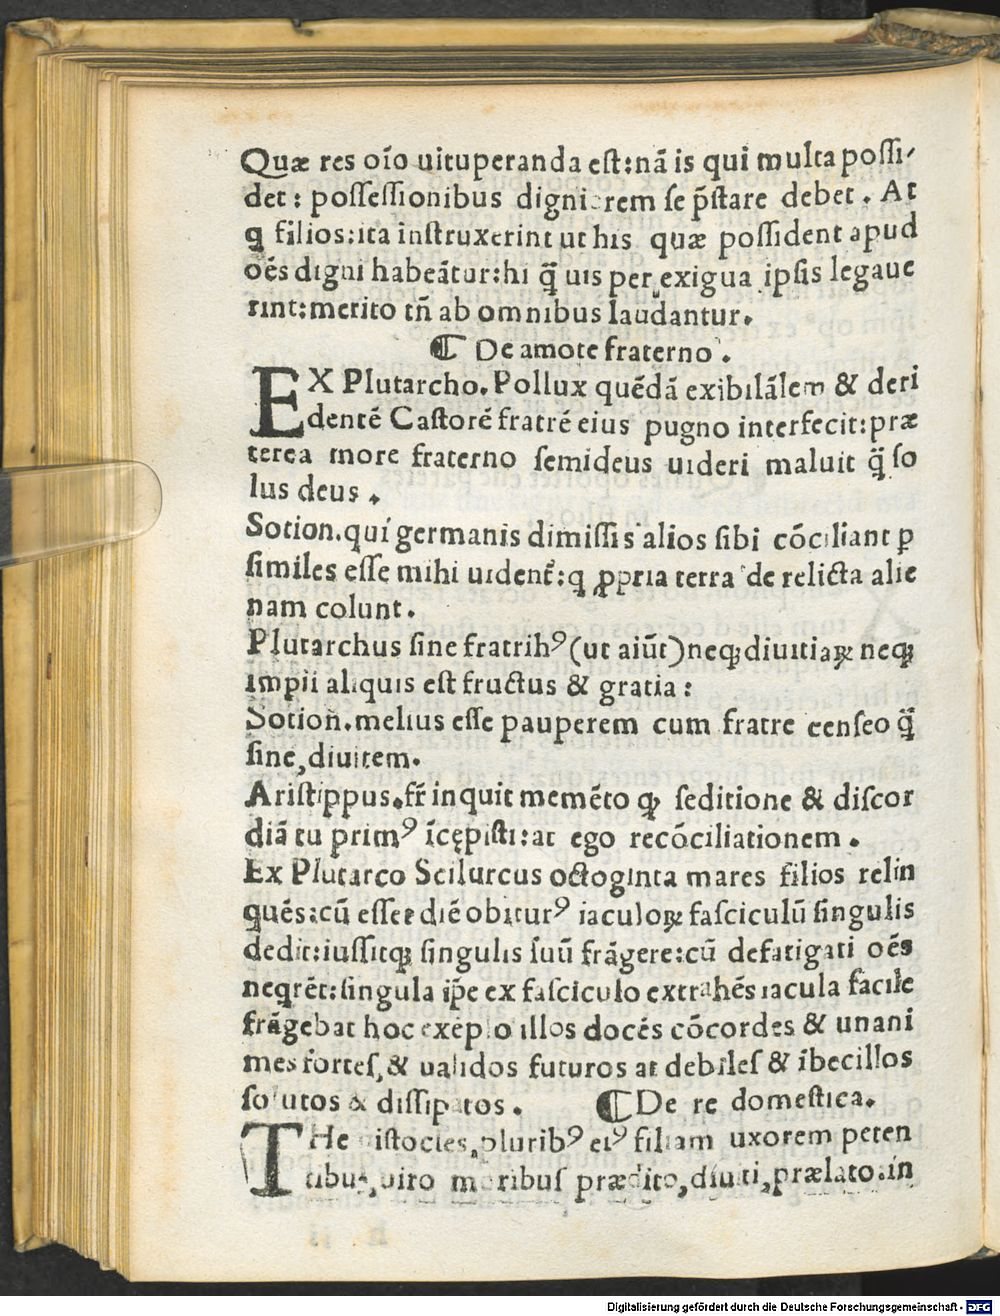 Quæ res oīo uituperanda est:nā is qui multa possi-
det : possessionibus digniorem se p̄stare debet . At
q filios:ita instruxerint ut his quæ possident apud
oēs digni habeātur:hi q̄ uis per exigua ipsis legaue
rint:merito tñ ab omnibus laudantur.
¶ De amore fraterno .
EX Plutarcho. Pollux quēdā exibilālem & deri
dentē Castorē fratrē eius pugno interfecit:præ
terea more fraterno semideus uideri maluit q̄ so
lus deus .
Sotion.qui germanis dimissis alios sibi cōciliant ꝑ
similes esse mihi uident̃:q ꝓpria terra de relicta alie
nam colunt.
Plutarchus sine fratrihꝰ (ut aiūt)neqꝫ diuitiaꝝ neqꝫ
impii aliquis est fructus & gratia :
Sotion.melius esse pauperem cum fratre censeo q̄
sine,diuitem.
Aristippus.fr̄ inquit memēto qꝫ seditione & discor
diā tu primꝰ īcępisti:at ego recōciliationem .
Ex Plutarco Scilurcus octoginta mares filios relin
quēs:cū esset diē obiturꝰ iaculoꝝ fasciculū singulis
dedit:iussitqꝫ singulis suū frāgere:cū defatigati oēs
neqrēt:singula ip̄e ex fasciculo extrahēs iacula facile
frāgebat hoc exēplo illos docēs cōcordes & unani
mes fortes,& ualidos futuros at debiles & ībecillos
solutos & dissipatos . ¶ De re domestica.
THemistocles,pluribꝰ eiꝰ filiam uxorem peten
tibus,uiro moribus prædito,diuiti,prælato:in
Digitalisierung gefördert durch die Deutsche Forschungsgemeinschaft - DFG